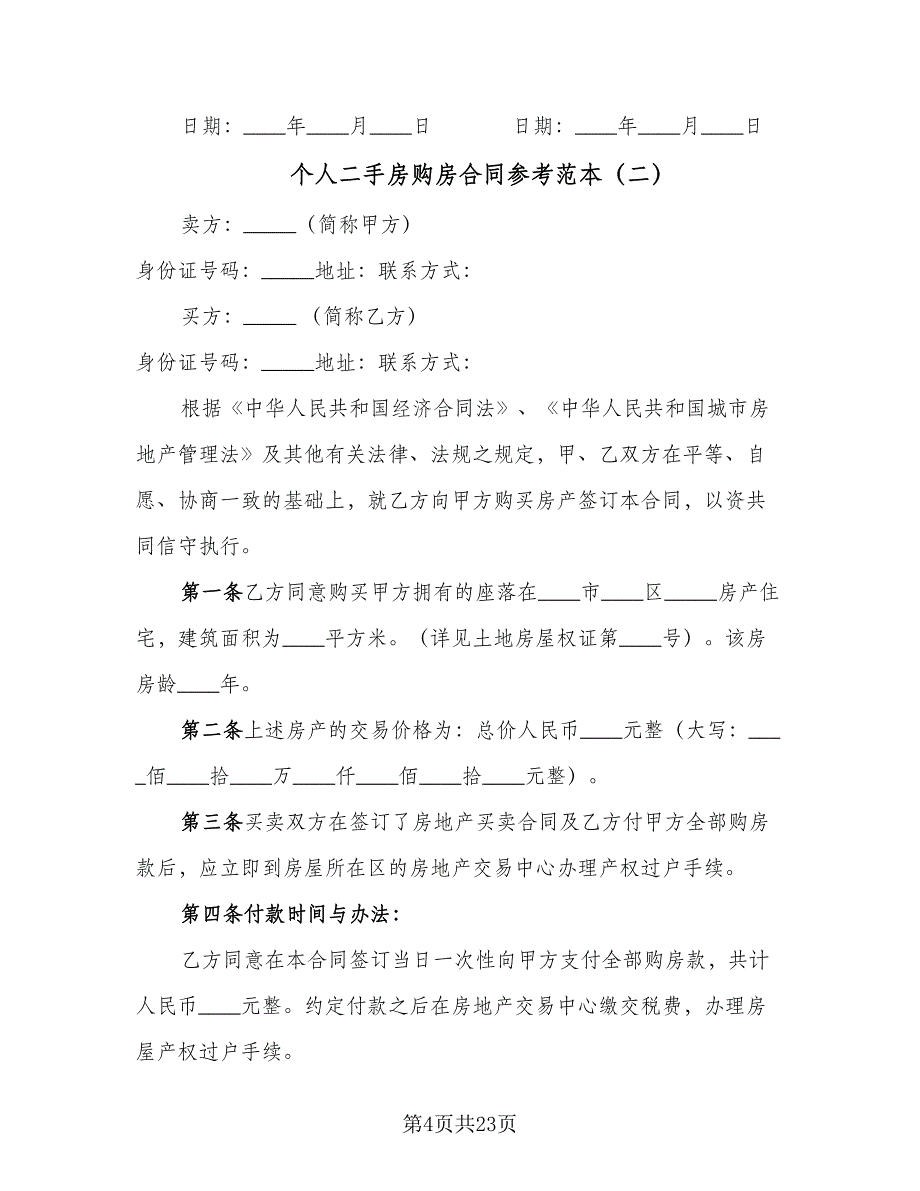 日期：____年____月____日 日期：____年____月____日
个人二手房购房合同参考范本（二）
卖方：_____（简称甲方）
身份证号码：_____地址：联系方式：
买方：_____ （简称乙方）
身份证号码：_____地址：联系方式：
根据《中华人民共和国经济合同法》、《中华人民共和国城市房
地产管理法》及其他有关法律、法规之规定，甲、乙双方在平等、自
愿、协商一致的基础上，就乙方向甲方购买房产签订本合同，以资共
同信守执行。
第一条乙方同意购买甲方拥有的座落在____市____区_____房产住
宅，建筑面积为____平方米。（详见土地房屋权证第____号）。该房
房龄____年。
第二条上述房产的交易价格为：总价人民币____元整（大写：___
_佰____拾____万____仟____佰____拾____元整）。
第三条买卖双方在签订了房地产买卖合同及乙方付甲方全部购房
款后，应立即到房屋所在区的房地产交易中心办理产权过户手续。
第四条付款时间与办法：
乙方同意在本合同签订当日一次性向甲方支付全部购房款，共计
人民币____元整。约定付款之后在房地产交易中心缴交税费，办理房
屋产权过户手续。
第4页共23页